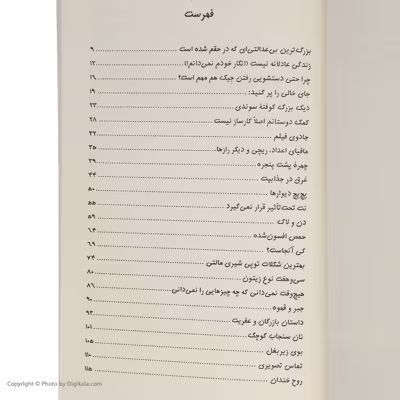 فهرست
بزرگ‌ترین بی‌عدالتی‌ای که در حقم شده است ... ۹
زندگی عادلانه نیست (انگار خودم نمی‌دانم!) ... ۱۲
چرا حتی دستشویی رفتن جیک هم مهم است؟ ... ۱۶
جای خالی را پر کنید: ... ۱۹
دیگ بزرگ کوفتهٔ سوئدی ... ۲۳
کمک دوستانم اصلاً کارساز نیست ... ۲۸
جادوی فیلم ... ۳۲
مافیای اعداد، ریچی و دیگر رازها ... ۳۵
چهرهٔ پشت پنجره ... ۳۹
غرق در جذابیت ... ۴۴
پچ‌پچ دیوارها ... ۵۰
نت تحت‌تأثیر قرار نمی‌گیرد ... ۵۵
دن و لاک ... ۵۹
حمص افسون‌شده ... ۶۴
کی آنجاست؟ ... ۶۹
بهترین شکلات توپی شیری مالتی ... ۷۴
سی‌وهفت نوع زیتون ... ۸۰
هیچ‌وقت نمی‌دانی که چه چیزهایی را نمی‌دانی ... ۸۶
جبر و قهوه ... ۹۰
داستان بازرگان و عفریت ... ۹۳
نان سنجاب کوچک ... ۱۰۱
بوی زیربغل ... ۱۰۵
تماس تصویری ... ۱۱۰
روح خندان ... ۱۱۵
Copyright © Photo by Digikala.com